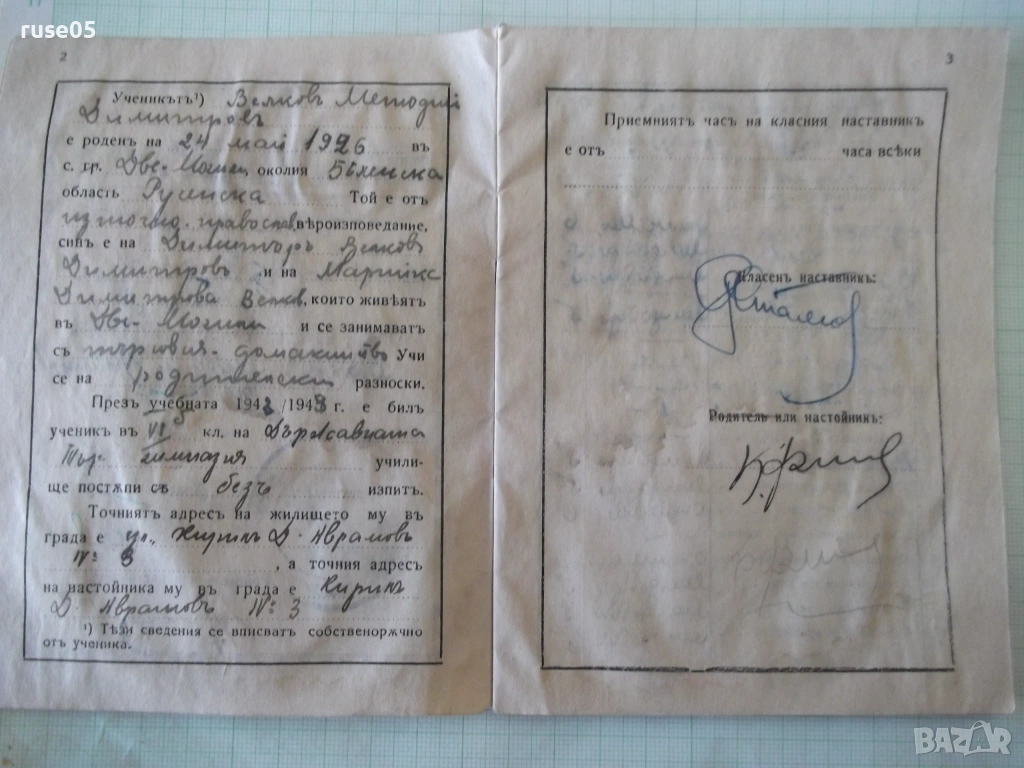 ruse05
2
Ученикътъ¹) Велковъ Методий
Димитровъ
е роденъ на 24 май 1926 въ
с. гр. Две-Могили околия Бѣленска
област Русенска Той е отъ
източно-православ. вѣроизповедание,
синъ е на Димитъръ Велковъ
Димитровъ и на Марийка
Димитрова Велков. които живѣятъ
въ Две-Могили и се занимаватъ
съ търговия-домакинство Учи
се на родителски разноски.
Презъ учебната 1942/1943 г. е билъ
ученик въ VI кл. на Държавната
Тър. гимназия учили-
ще постѫпи съ безъ изпит.
Точниятъ адресъ на жилището му въ
града е ул. Кирилъ Д. Аврамовъ
№ 3, а точния адресъ
на настойника му въ града е Кирилъ
Д. Аврамовъ № 3
¹) Тѣзи сведения се вписватъ собственорѫчно
отъ ученика.
3
Приемниятъ часъ на класния наставникъ
е отъ часа всѣки
Класенъ наставникъ:
Родитель или настойникъ:
BAZAR